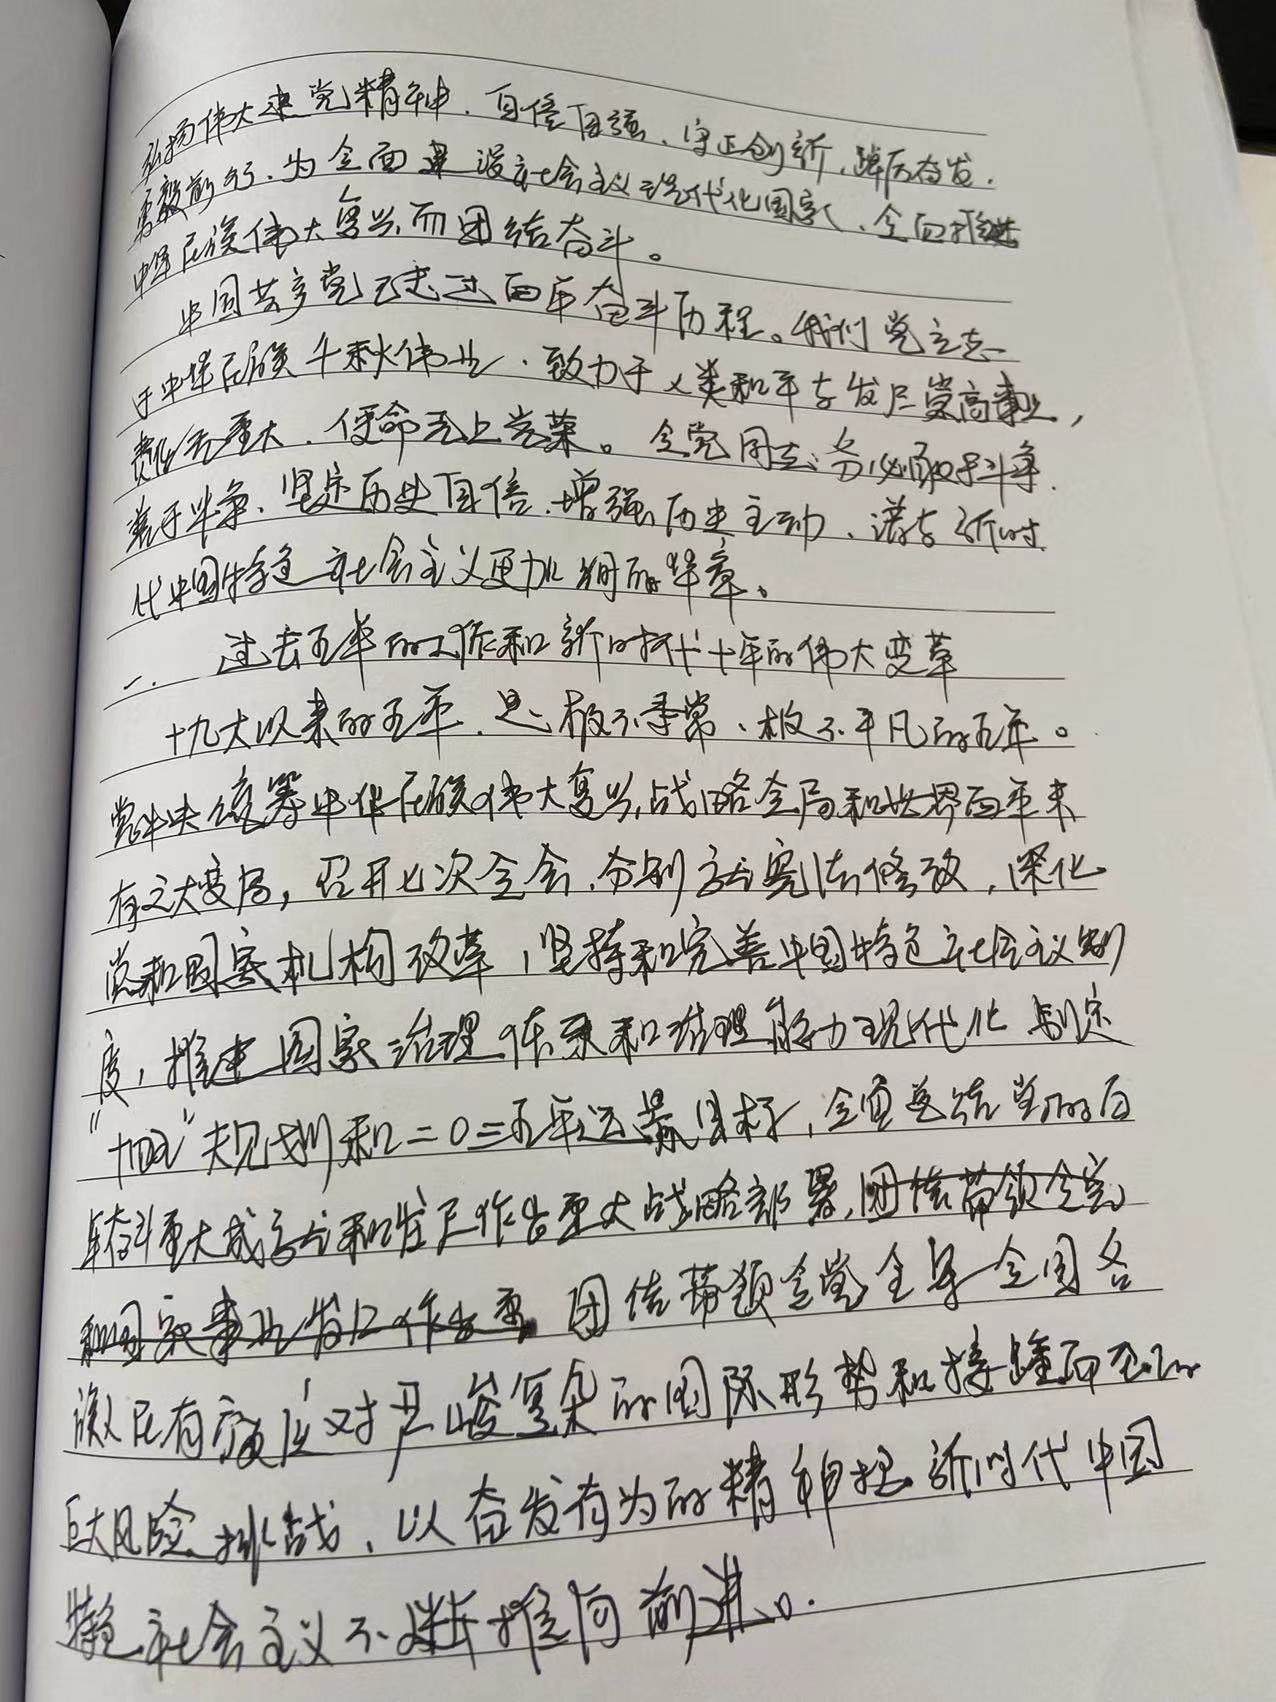 弘扬伟大建党精神，自信自强、守正创新，踔厉奋发、
勇毅前行，为全面建设社会主义现代化国家、全面推进
中华民族伟大复兴而团结奋斗。
中国共产党已走过百年奋斗历程。我们党立志
于中华民族千秋伟业，致力于人类和平与发展崇高事业，
责任无重大，使命无上光荣。全党同志务必敢于斗争、
善于斗争，坚定历史自信，增强历史主动，谱写新时
代中国特色社会主义更加绚丽的华章。
一. 过去五年的工作和新时代十年的伟大变革
十九大以来的五年，是极不寻常、极不平凡的五年。
党中央统筹中华民族伟大复兴战略全局和世界百年未
有之大变局，召开七次全会，分别就宪法修改，深化
党和国家机构改革，坚持和完善中国特色社会主义制
度，推进国家治理体系和治理能力现代化 制定
“十四五”规划和二〇三五年远景目标，全面总结党的百
年奋斗重大成就和发展作出重大战略部署，团结带领全党
和国家事业发展作出重 团结带领全党全军全国各
族人民有效应对严峻复杂的国际形势和接踵而至的
巨大风险挑战，以奋发有为的精神把新时代中国
特色社会主义不断推向前进。